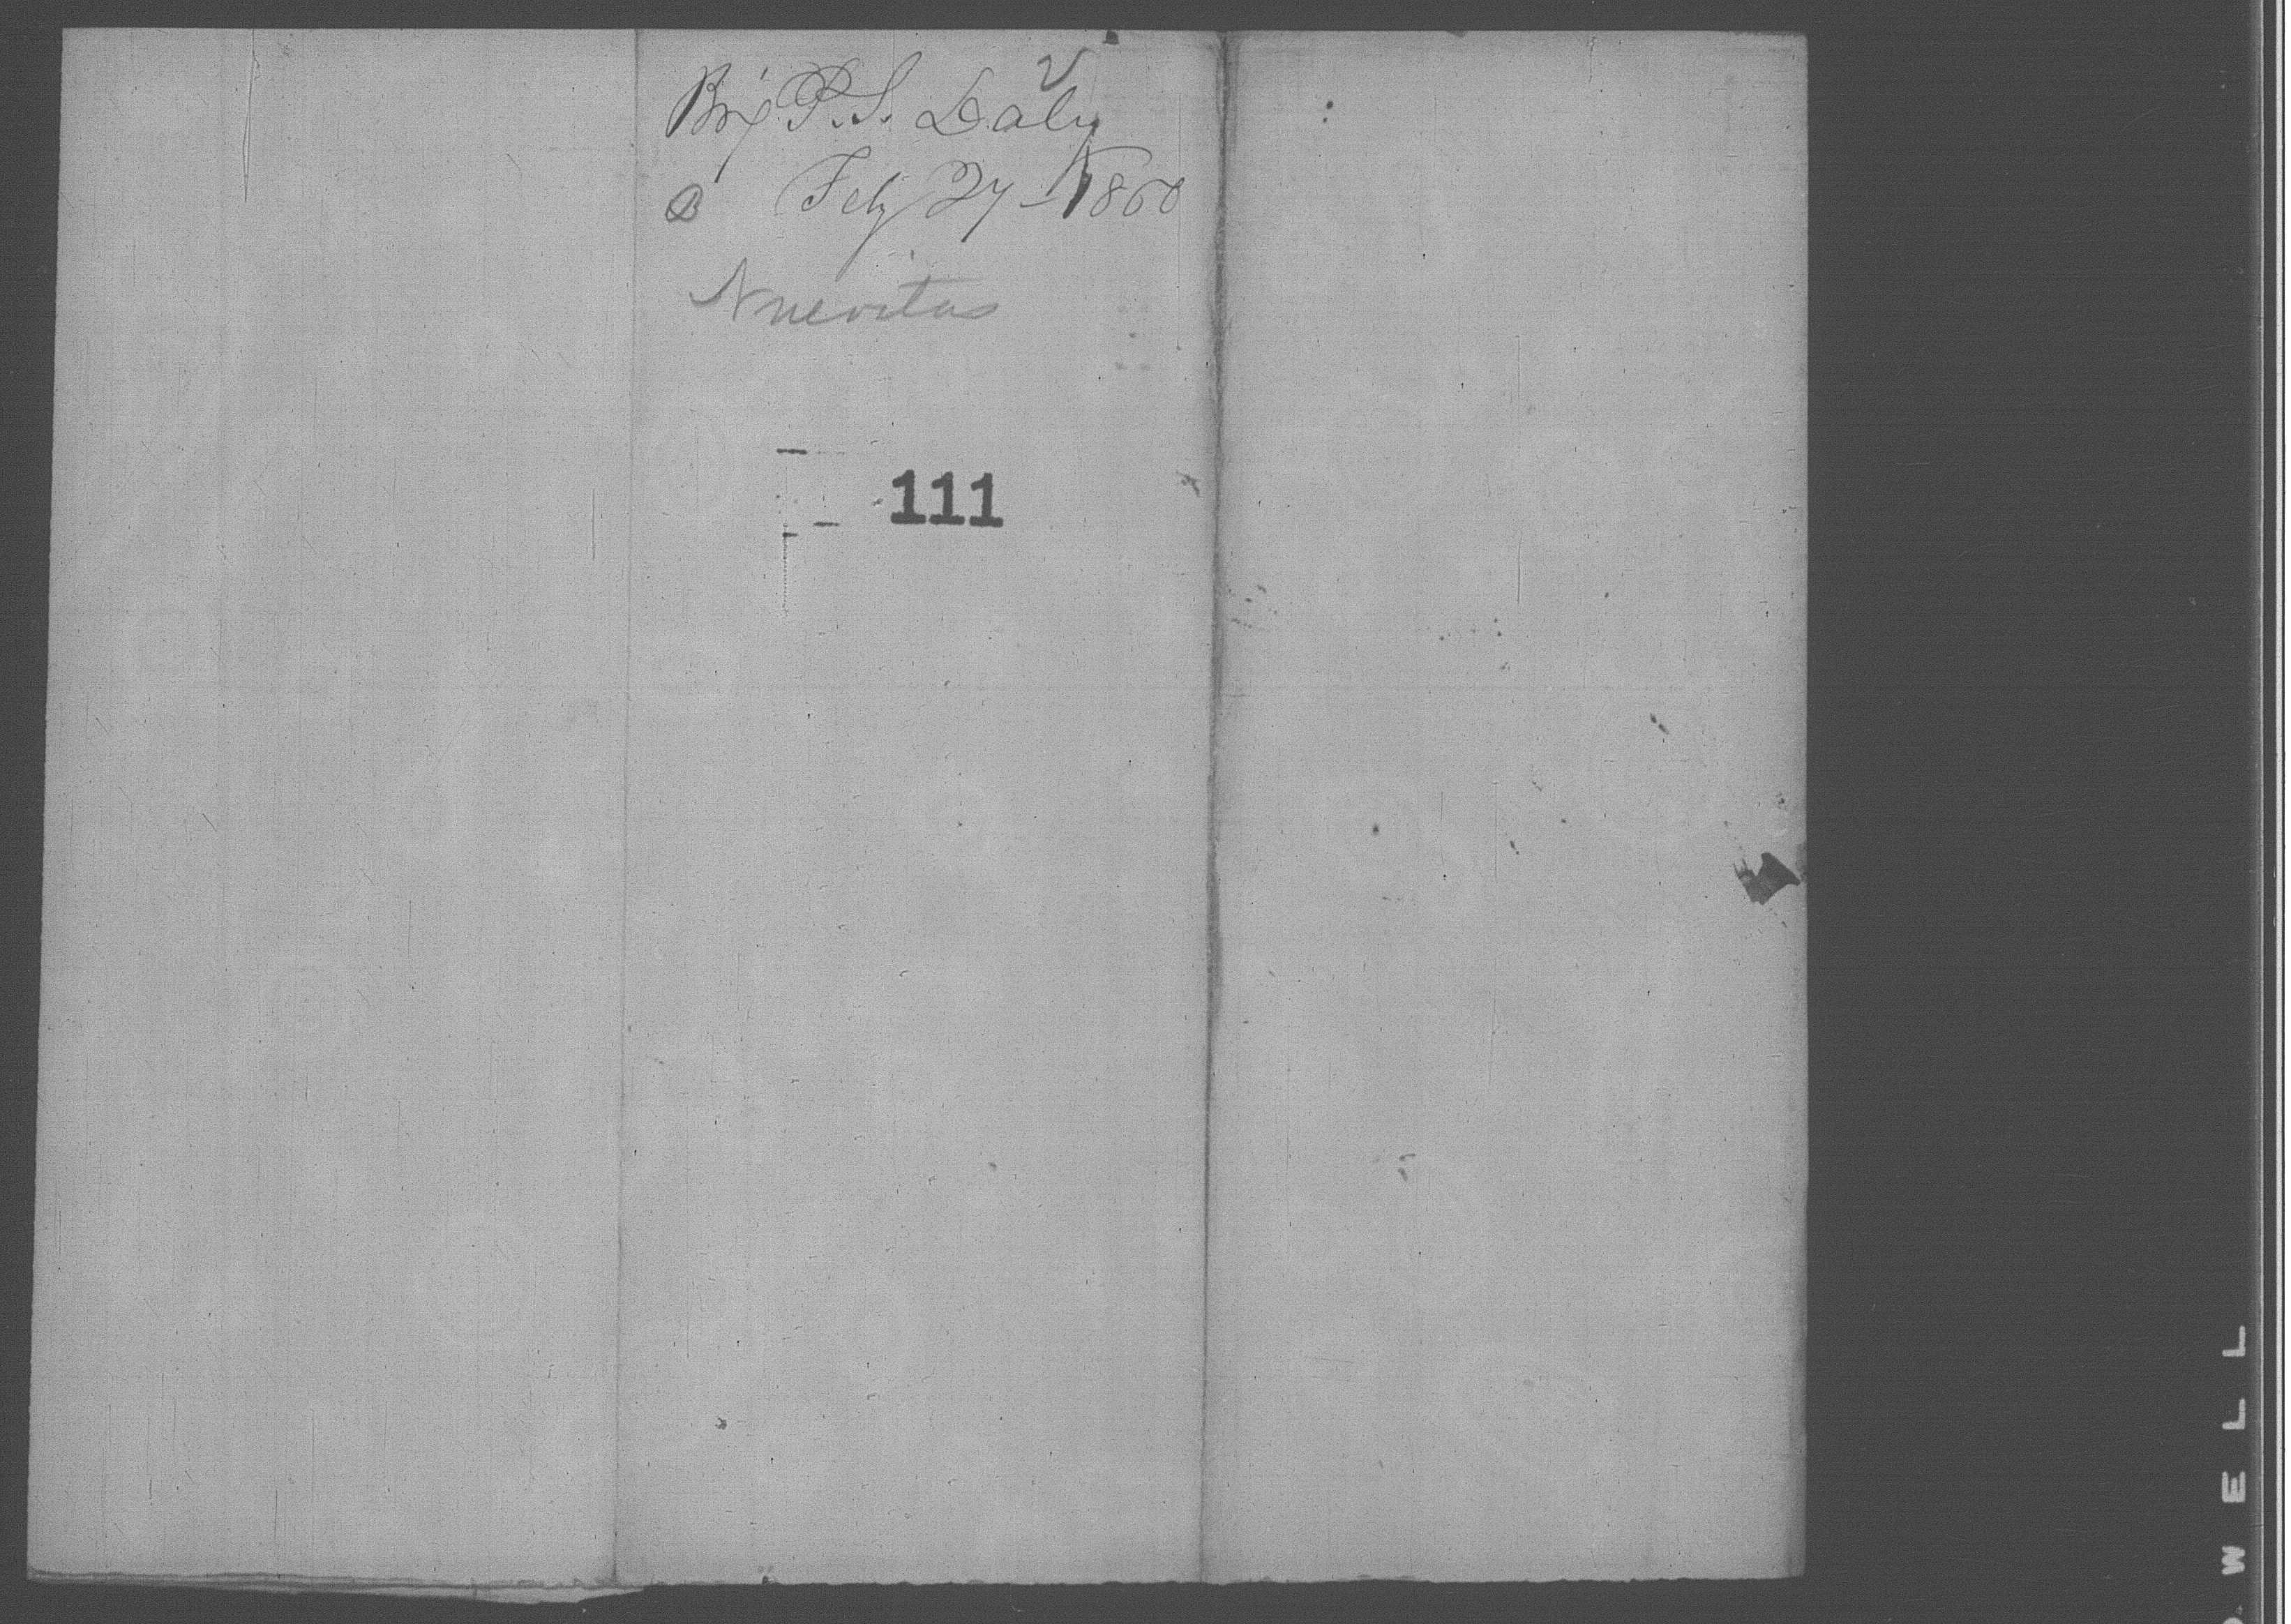 Brig P. S. Daly
Feby 27 - 1860
Nuevitas
111
WELL